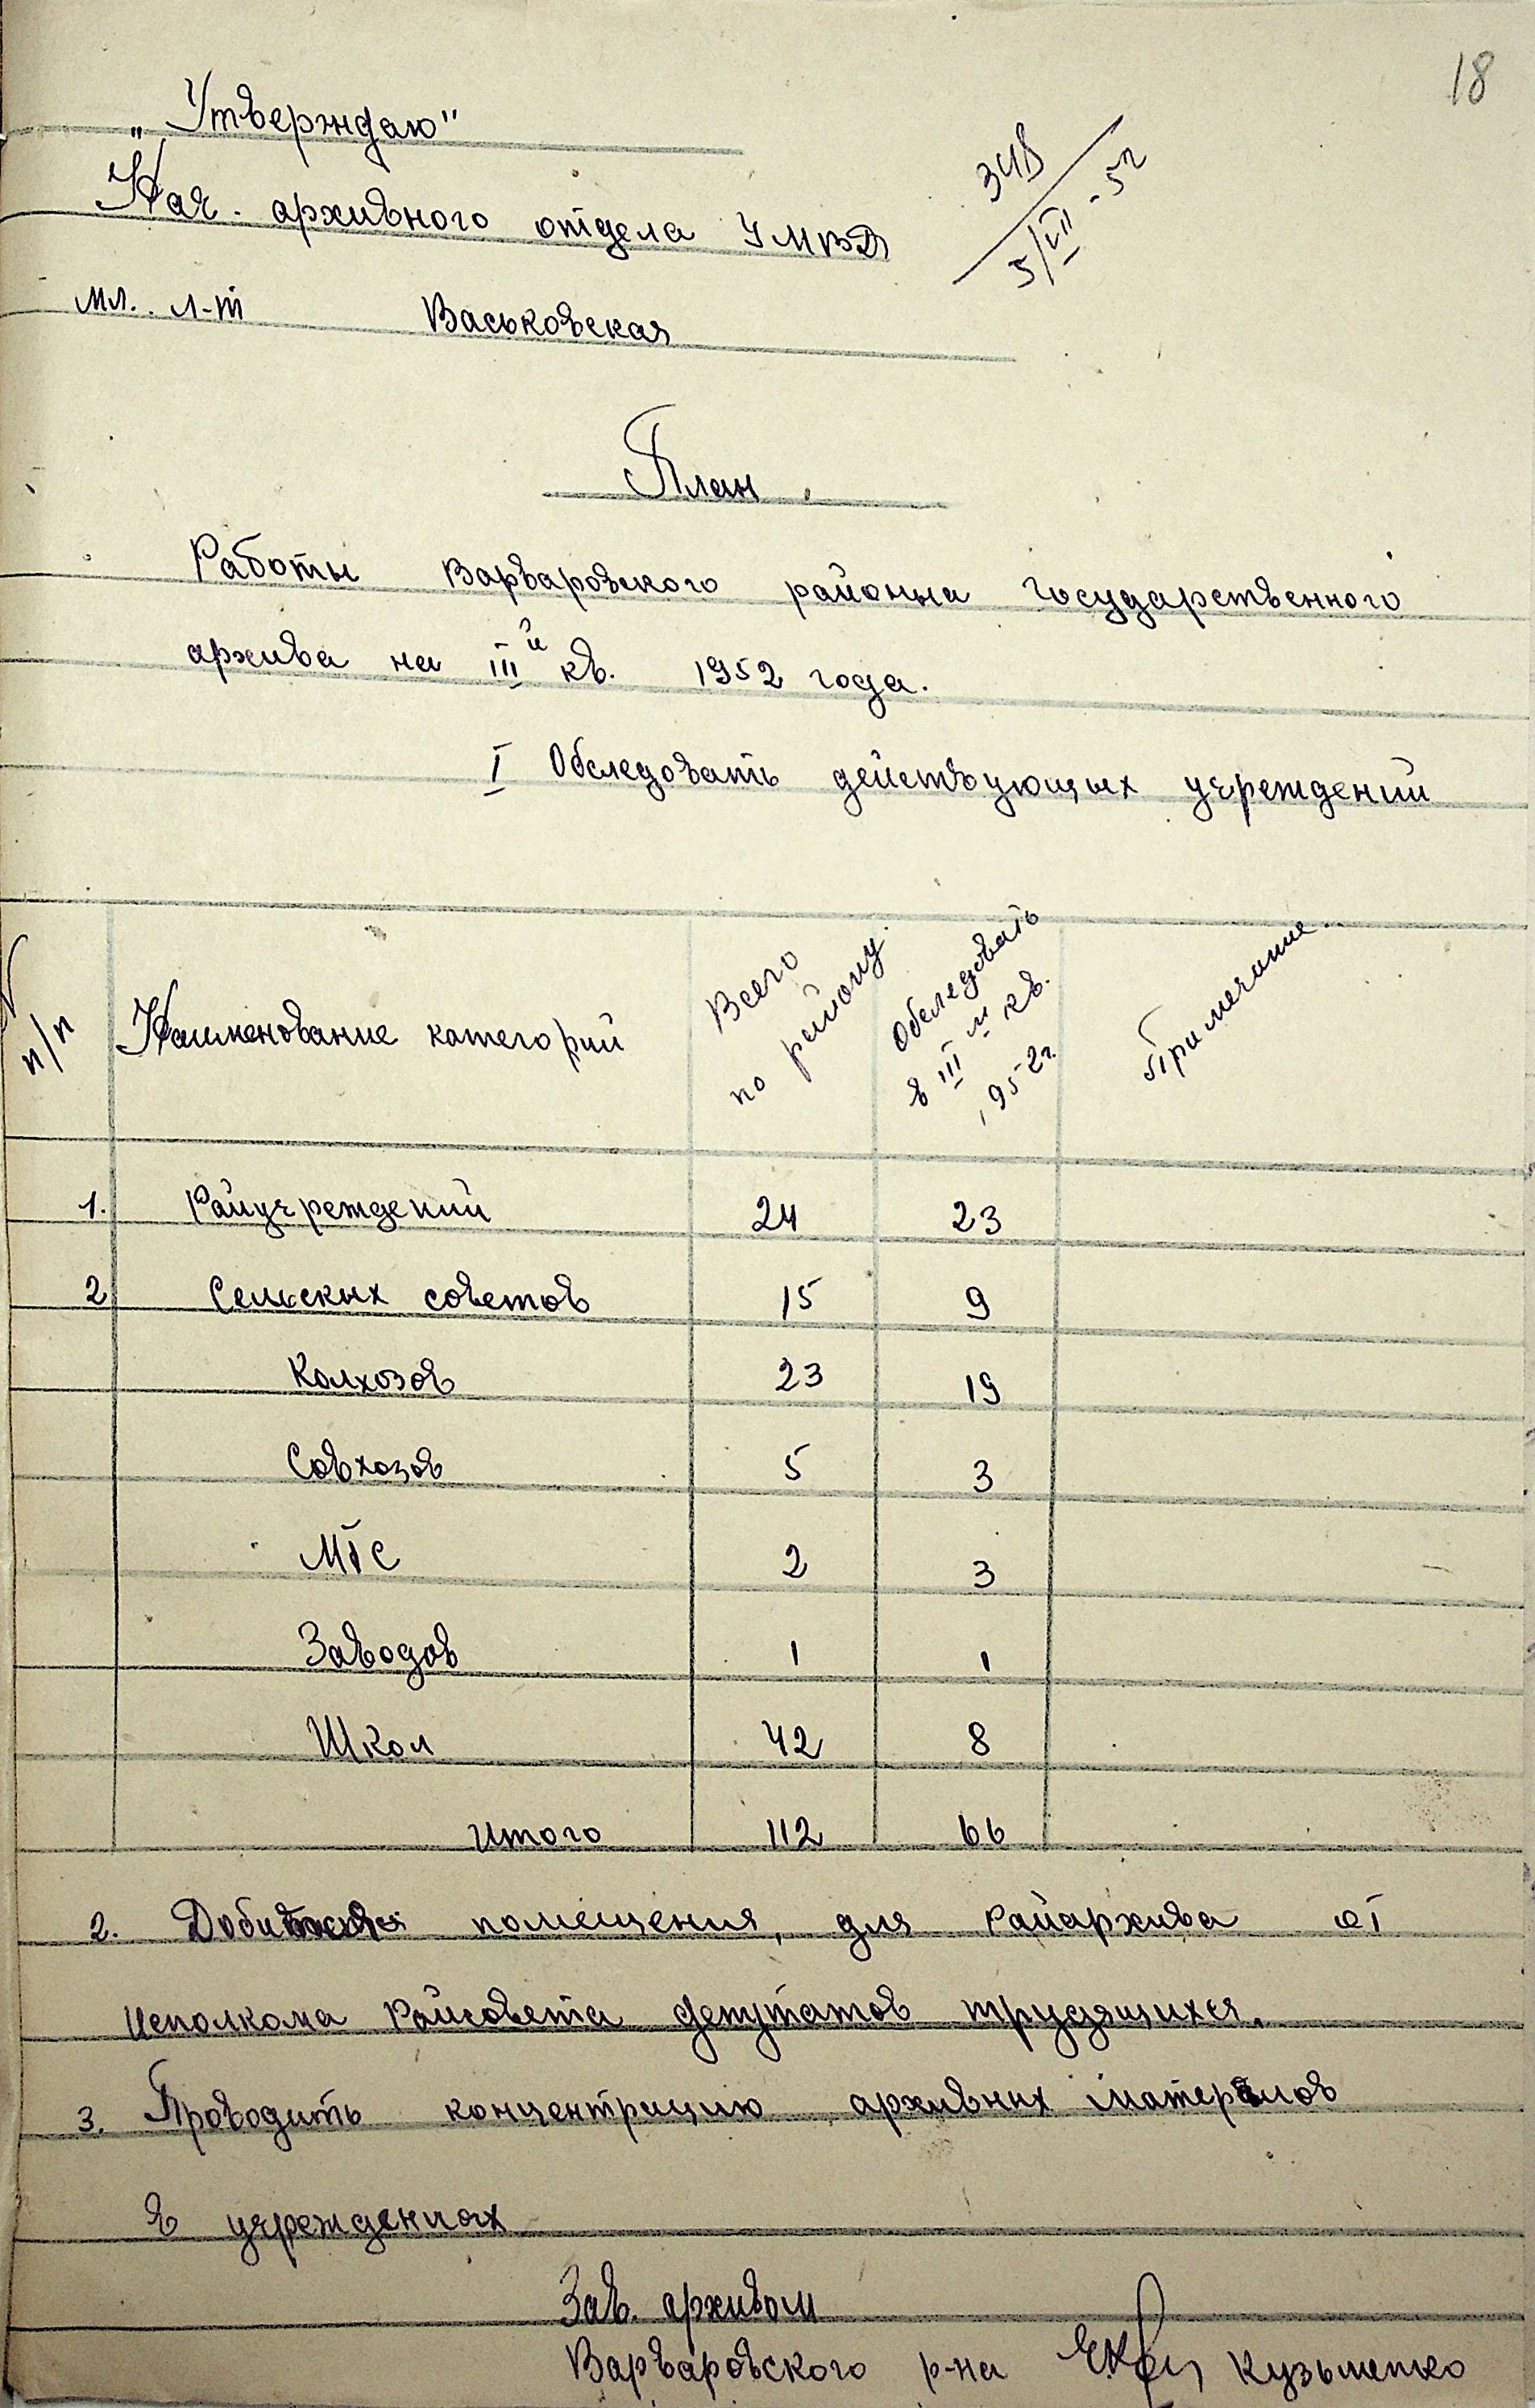 18
„Утверждаю"
Нач. архивного отдела УМВД
348
5/VII-52
мл. л-т Васьковская
План.
Работы Варваровского районна государственного
архива на III й кв. 1952 года.
I Обследовать действующых учреждений
N п/п Наименование категорий Всего по району Обследовать в III м кв. 1952г. Примечание
1. Райучреждений 24 23
2 Сельскых советов 15 9
Колхозов 23 19
Совхозов 5 3
МТС 2 3
Заводов 1 1
Школ 42 8
Итого 112 66
2. Добиться помещения, для Райархива от
исполкома Райсовета депутатов трудящихся.
3. Проводить концентрицию архивных матералов
в учреждениях
Зав. архивом
Варваровского р-на Кузьменко